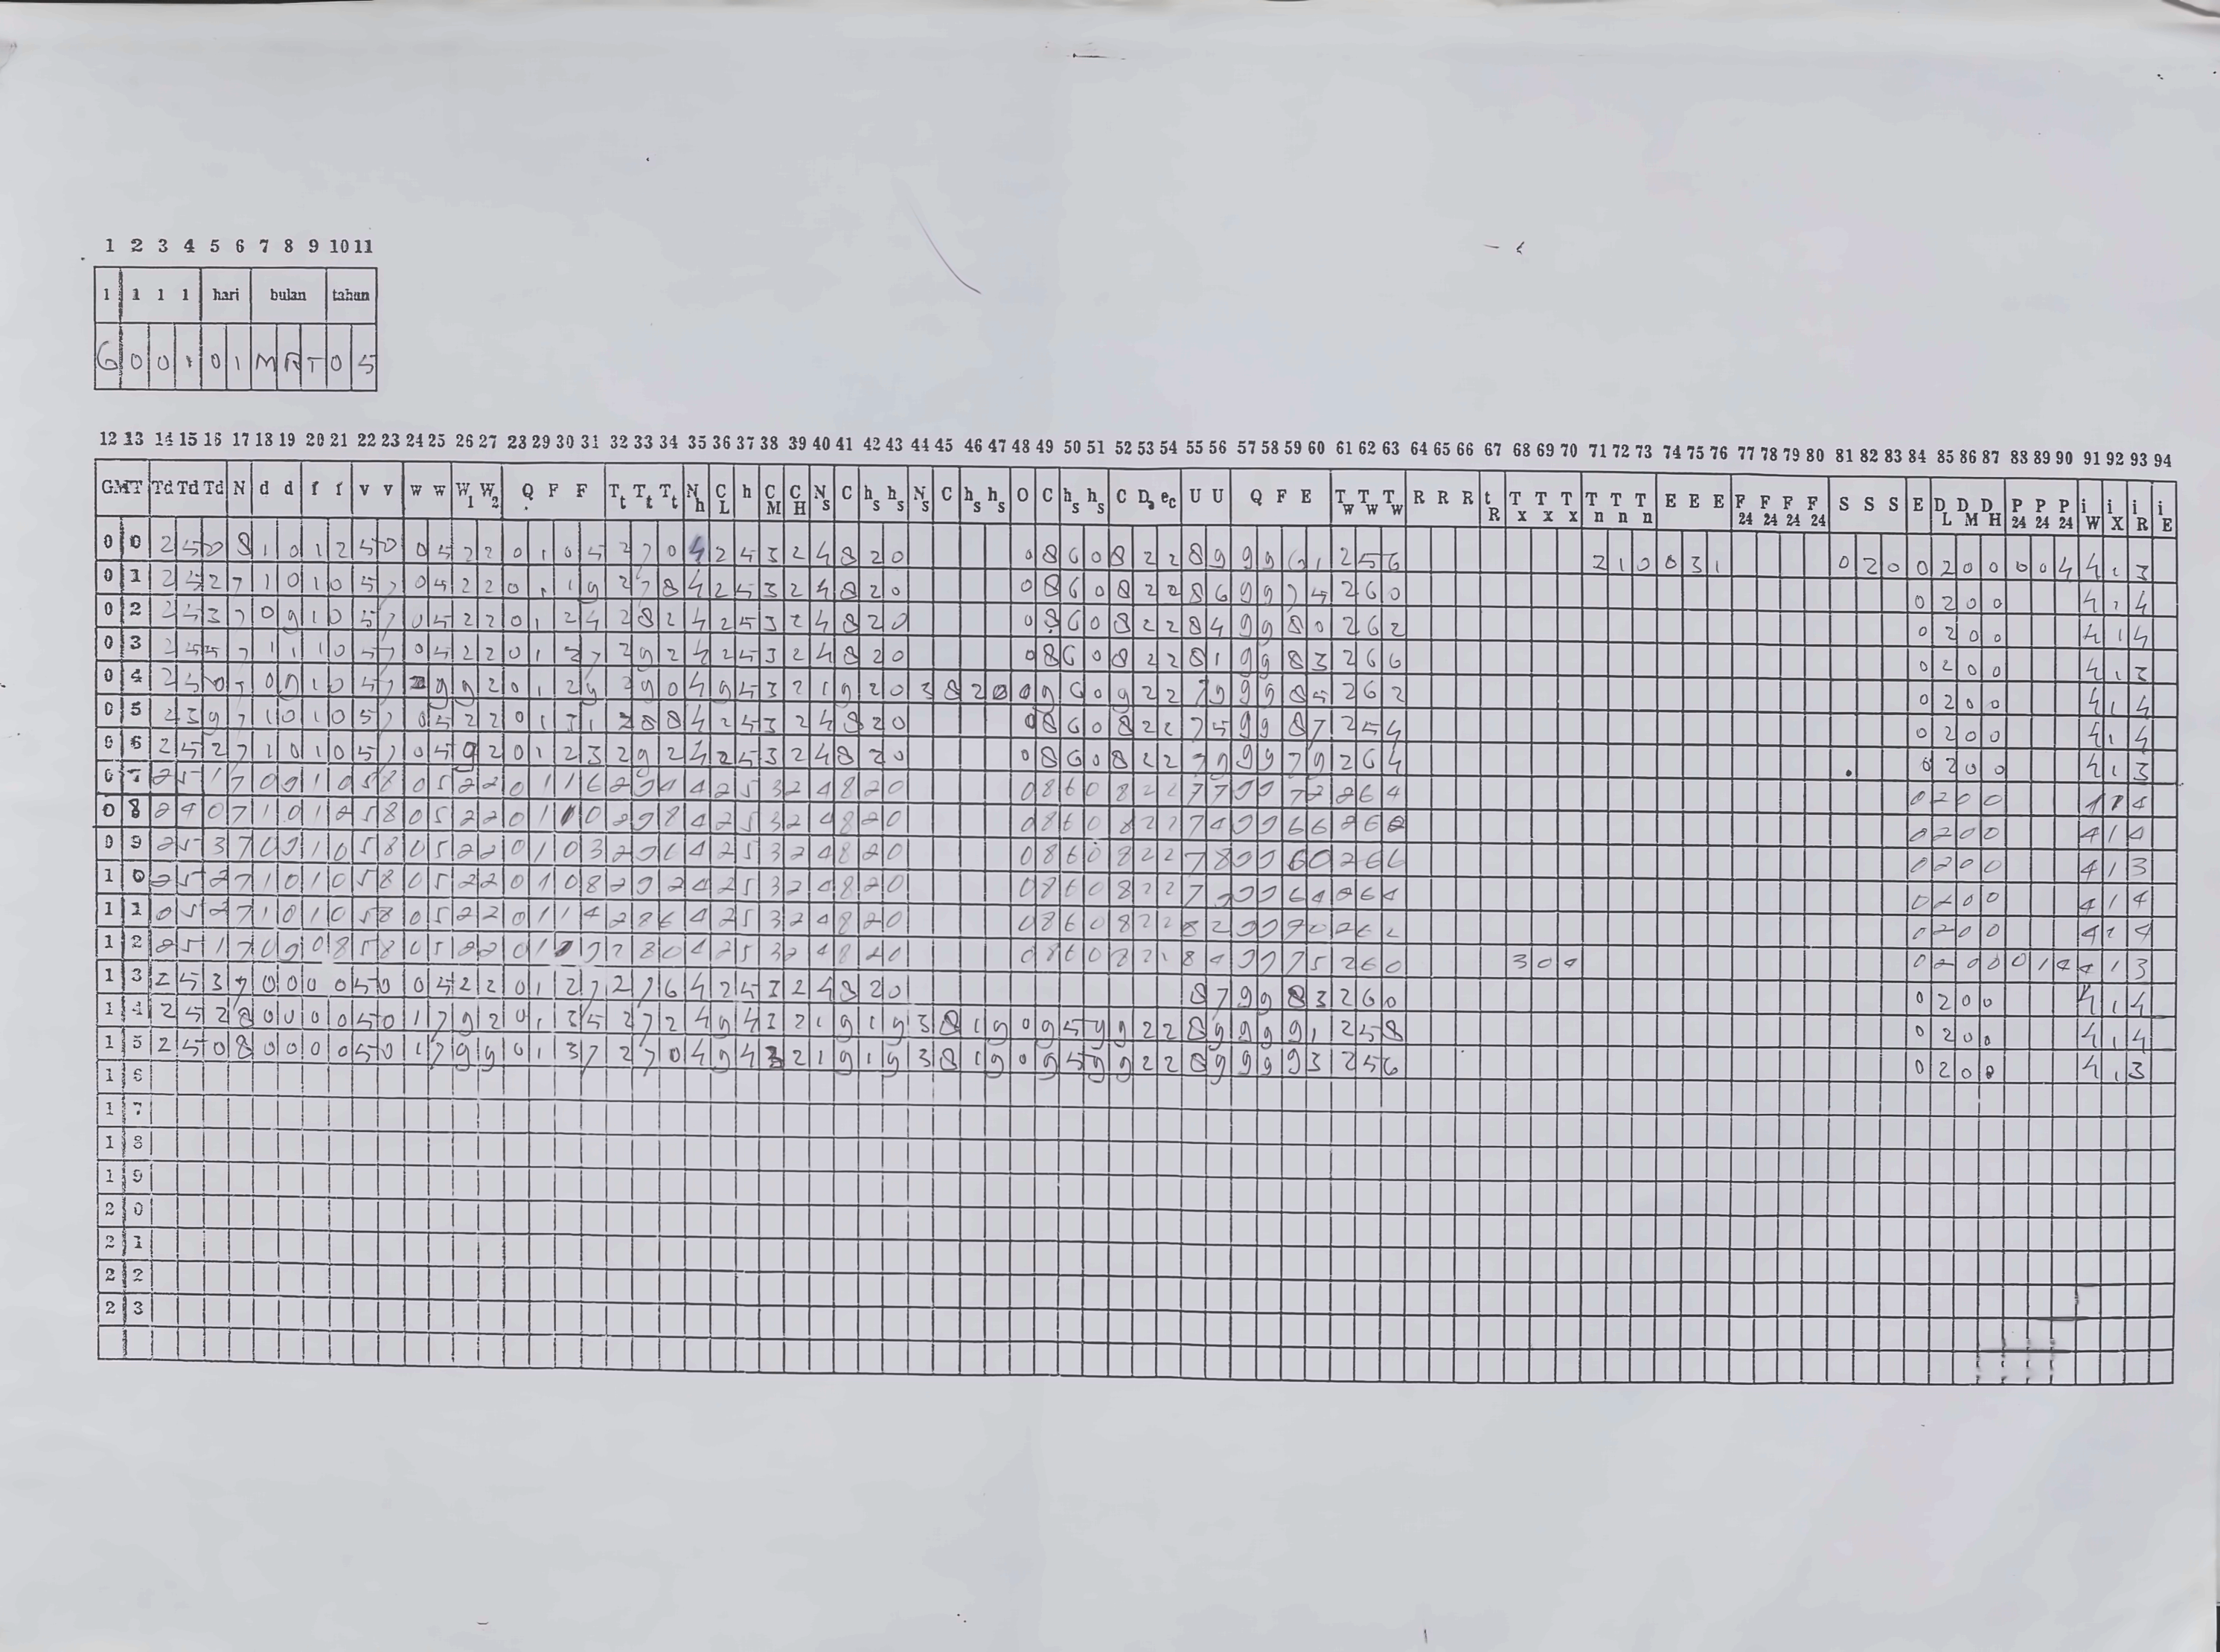 1 2 3 4 5 6 7 8 9 10 11
1 1 1 1 hari bulan tahun
6 0 0 1 0 1 M R T 0 5
12 13 14 15 16 17 18 19 20 21 22 23 24 25 26 27 28 29 30 31 32 33 34 35 36 37 38 39 40 41 42 43 44 45 46 47 48 49 50 51 52 53 54 55 56 57 58 59 60 61 62 63 64 65 66 67 68 69 70 71 72 73 74 75 76 77 78 79 80 81 82 83 84 85 86 87 88 89 90 91 92 93 94
GMT Td Td Td N d d f f v v w w W1 W2 Q F F Tt Tt Tt Nh CL h CM CH Ns C hs hs Ns C hs hs O C hs hs C Da ec U U Q F E Tw Tw Tw R R R tR Tx Tx Tx Tn Tn Tn E E E F24 F24 F24 F24 S S S E DL DM DH P24 P24 P24 iW iX iR iE
0 0 2 5 0 8 1 0 1 2 5 0 0 5 2 2 0 1 0 5 2 7 0 4 2 5 3 2 4 8 2 0 0 8 6 0 8 2 2 8 9 9 9 6 1 2 5 6 2 1 0 0 3 1 0 2 0 0 2 0 0 0 0 4 4 1 3
0 1 2 5 2 7 1 0 1 0 5 7 0 5 2 2 0 1 1 9 2 7 8 4 2 5 3 2 4 8 2 0 0 8 6 0 8 2 2 8 6 9 9 7 5 2 6 0 0 2 0 0 4 1 4
0 2 2 5 3 7 0 9 1 0 5 7 0 5 2 2 0 1 2 4 2 8 2 4 2 5 3 2 4 8 2 0 0 8 6 0 8 2 2 8 4 9 9 8 0 2 6 2 0 2 0 0 4 1 4
0 3 2 5 5 7 1 1 1 0 5 7 0 5 2 2 0 1 2 7 2 9 2 4 2 5 3 2 4 8 2 0 0 8 6 0 8 2 2 8 1 9 9 8 3 2 6 6 0 2 0 0 4 1 3
0 4 2 5 0 7 0 9 1 0 5 7 2 9 9 2 0 1 2 9 2 9 0 4 9 5 3 2 1 9 2 0 3 8 2 0 0 9 6 0 9 2 2 7 9 9 9 8 5 2 6 2 0 2 0 0 4 1 4
0 5 2 3 9 7 1 0 1 0 5 7 0 5 2 2 0 1 3 1 2 8 8 4 2 5 3 2 4 8 2 0 0 8 6 0 8 2 2 7 5 9 9 8 7 2 5 4 0 2 0 0 4 1 4
0 6 2 5 2 7 1 0 1 0 5 7 0 5 9 2 0 1 2 3 2 9 2 4 2 5 3 2 4 8 2 0 0 8 6 0 8 2 2 7 9 9 9 7 9 2 6 4 0 2 0 0 4 1 3
0 7 2 5 1 7 0 9 1 0 5 8 0 5 2 2 0 1 1 6 2 9 4 4 2 5 3 2 4 8 2 0 0 8 6 0 8 2 2 7 7 9 9 7 2 2 6 4 0 2 0 0 4 1 4
0 8 2 4 0 7 1 0 1 2 5 8 0 5 2 2 0 1 1 0 2 9 8 4 2 5 3 2 4 8 2 0 0 8 6 0 8 2 2 7 4 9 9 6 6 2 6 0 2 0 0 4 1 4
0 9 2 5 3 7 0 9 1 0 5 8 0 5 2 2 0 1 0 3 2 9 6 4 2 5 3 2 4 8 2 0 0 8 6 0 8 2 2 7 8 9 9 6 0 2 6 6 0 2 0 0 4 1 3
1 0 2 5 2 7 1 0 1 0 5 8 0 5 2 2 0 1 0 8 2 9 2 4 2 5 3 2 4 8 2 0 0 8 6 0 8 2 2 7 9 9 9 6 4 2 6 4 0 2 0 0 4 1 4
1 1 2 5 2 7 1 0 1 0 5 8 0 5 2 2 0 1 1 4 2 8 6 4 2 5 3 2 4 8 2 0 0 8 6 0 8 2 2 8 2 9 9 7 0 2 6 2 0 2 0 0 4 1 4
1 2 2 5 1 7 0 9 0 8 5 8 0 5 2 2 0 1 1 9 2 8 0 4 2 5 3 2 4 8 2 0 0 8 6 0 8 2 1 8 4 9 9 7 5 2 6 0 3 0 4 0 2 0 0 0 1 4 4 1 3
1 3 2 5 3 7 0 0 0 0 5 0 0 5 2 2 0 1 2 7 2 7 6 4 2 5 3 2 4 8 2 0 8 7 9 9 8 3 2 6 0 0 2 0 0 4 1 4
1 4 2 5 2 8 0 0 0 0 5 0 1 7 9 2 0 1 3 5 2 7 2 4 9 4 3 2 1 9 1 9 3 8 1 9 0 9 5 9 9 2 2 8 9 9 9 9 1 2 5 8 0 2 0 0 4 1 4
1 5 2 5 0 8 0 0 0 0 5 0 1 7 9 9 0 1 3 7 2 7 0 4 9 4 3 2 1 9 1 9 3 8 1 9 0 9 5 9 9 2 2 8 9 9 9 9 3 2 5 6 0 2 0 0 4 1 3
1 6
1 7
1 8
1 9
2 0
2 1
2 2
2 3